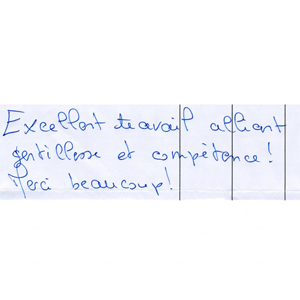 Excellent travail alliant
gentillesse et compétence !
Merci beaucoup !